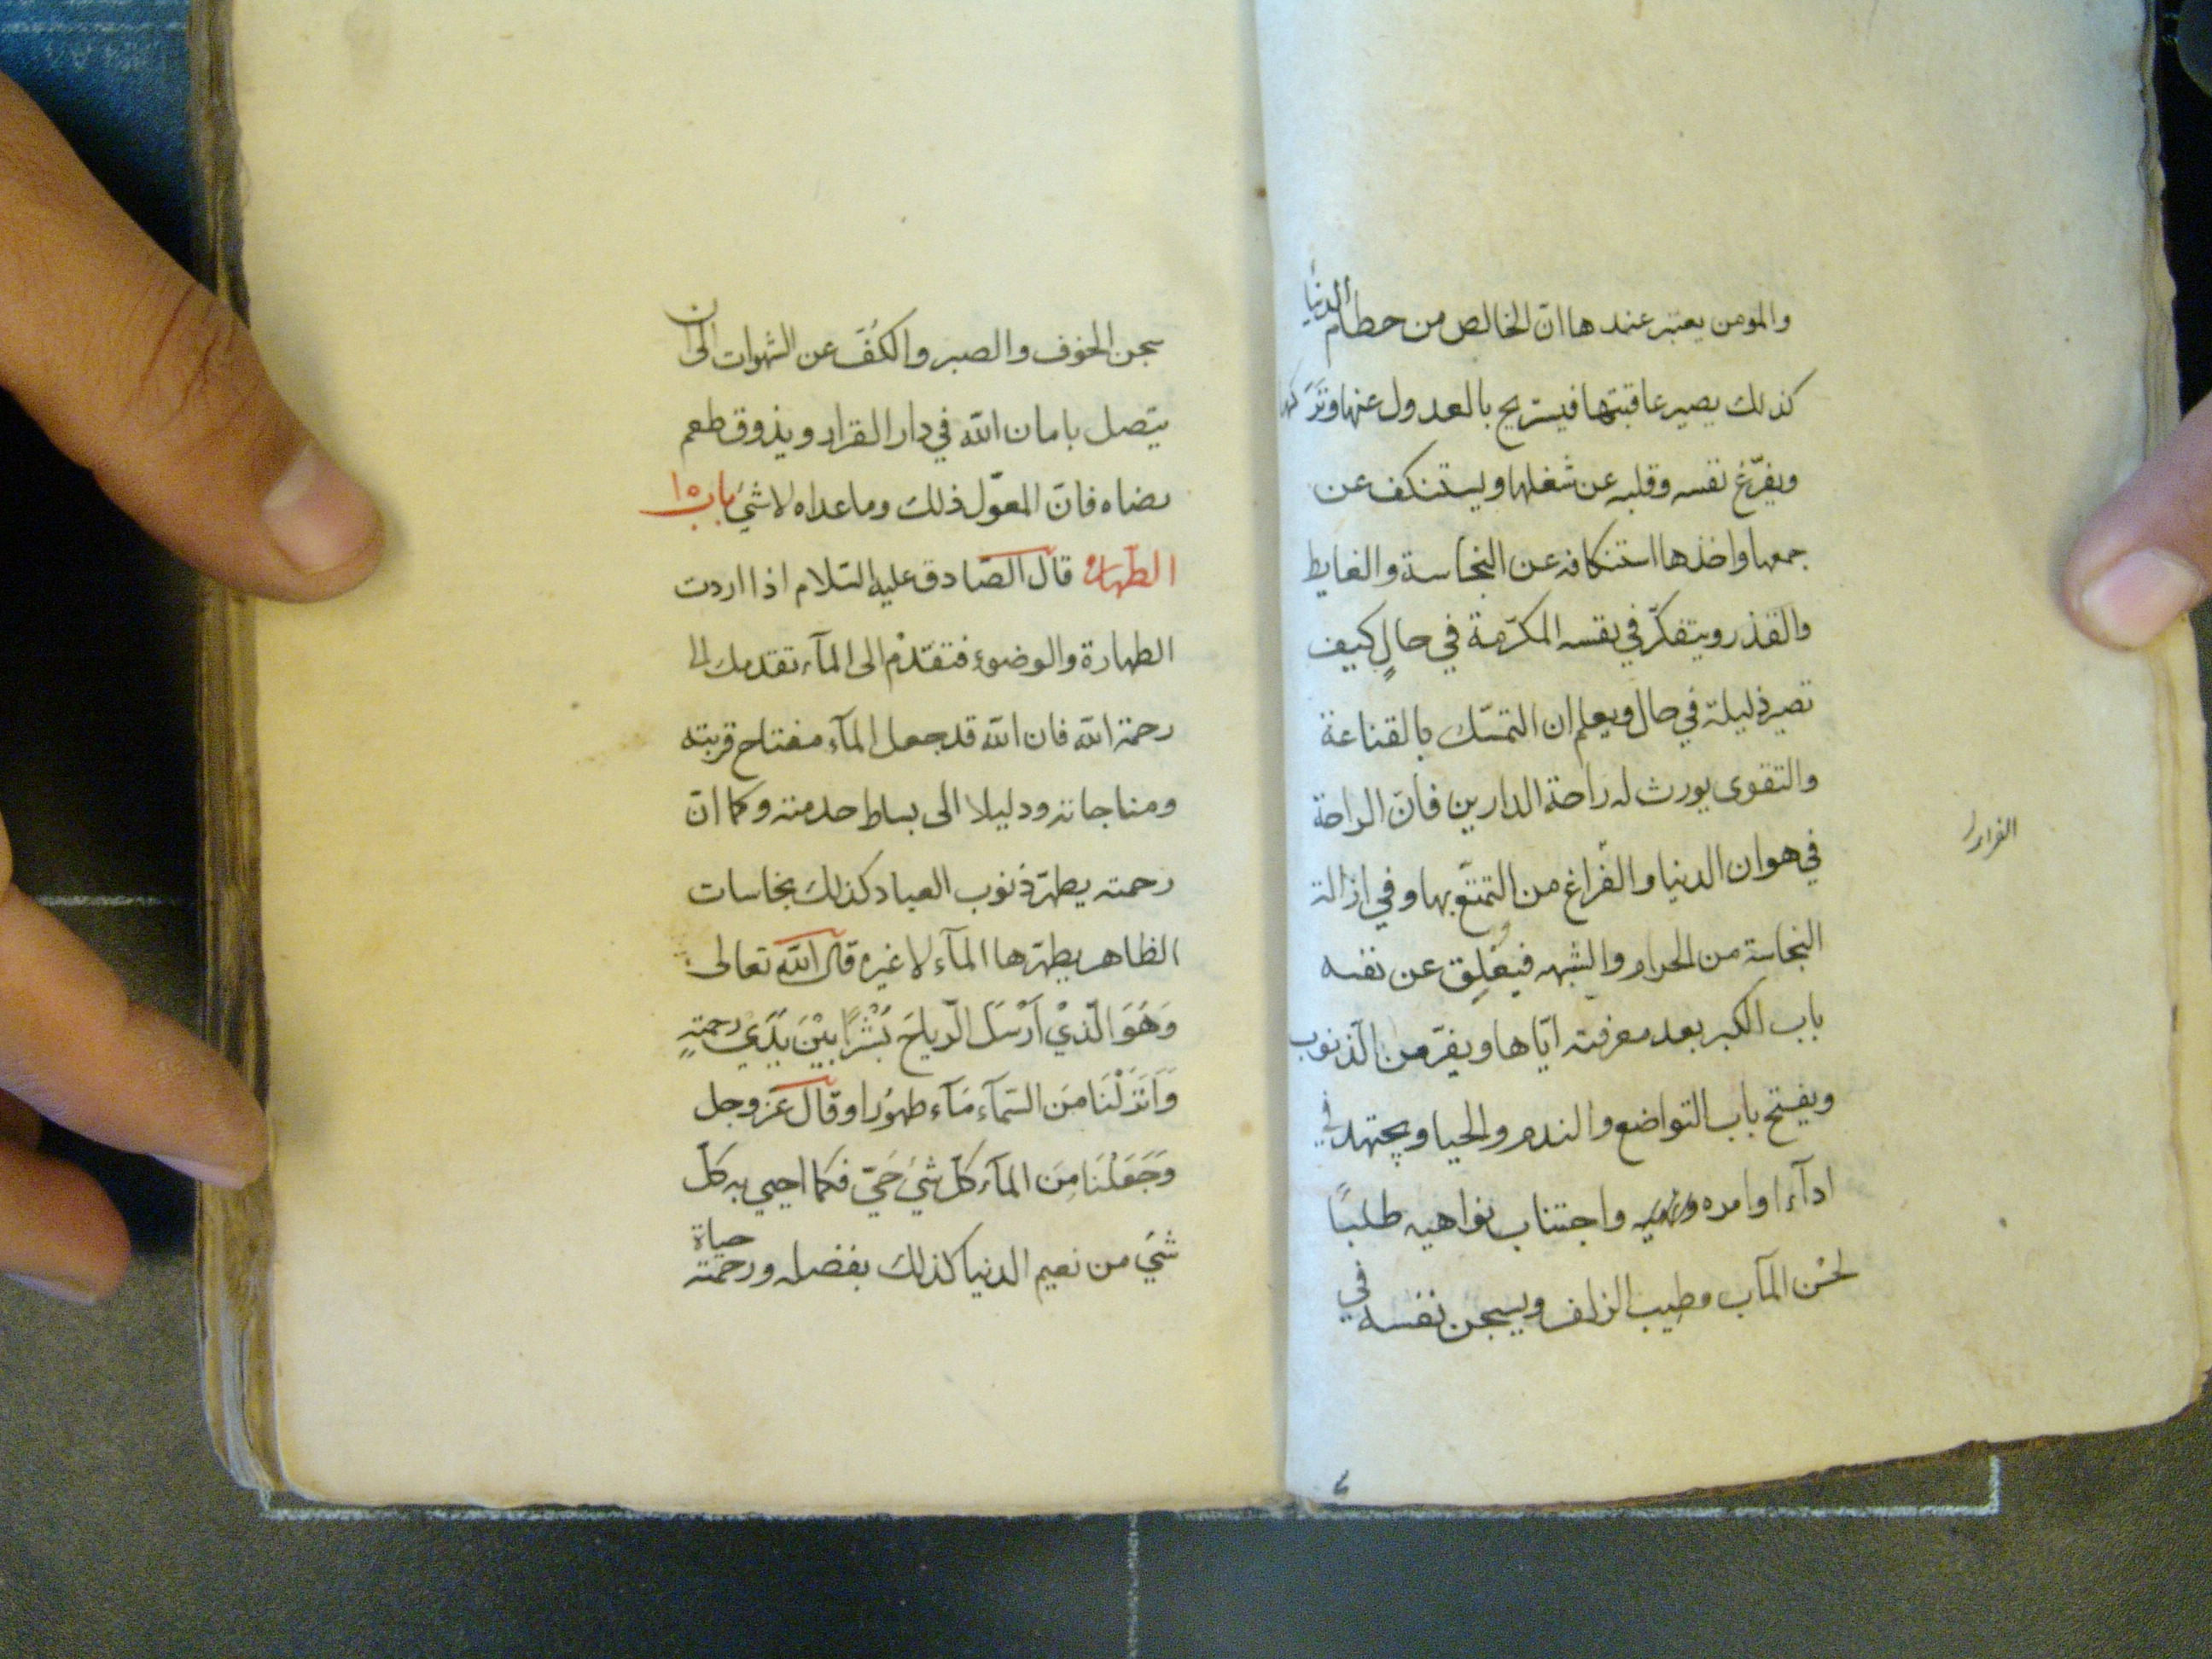 والمومن يعتبر عندها ان الخالص من حطام الدنيا
كذلك يصير عاقبتها فيستريح بالعدول عنها وتركها
ويفرّغ نفسه وقلبه عن شغلها ويستنكف عن
جمعها واخذها استنكافه عن النجاسة والغايط
والقذر ويتفكّر في نفسه المكرّمة في حالٍ كيف
تصير ذليلة في حال ويعلم ان التمسّك بالقناعة
والتقوى يورث له راحة الدارين فانّ الراحة
في هوان الدنيا والفراغ من التمتّع بها وفي ازالة
النجاسة من الحرام والشبهه فيغلق عن نفسه
باب الكبر بعد معرفته ايّاها ويفرّ من الذنوب
ويفتح باب التواضع والندم والحيا ويجتهد في
ادآء اوامره واجتناب نواهيه طلبًا
لحُسْن المآب وطيب الزلف ويسجن نفسه في
سجن الخوف والصبر والكفّ عن الشهوات الى ان
يتّصل بامان الله في دار القرار ويذوق طعم
رضاه فانّ المعوّل ذلك وما عداه لا شيَ باب ١٥
الطهارة قال الصّادق عليه السّلام اذا اردت
الطهارة والوضوء فتقدّمْ الى المآء تقدمك الى
رحمة الله فان الله قد جعل المآء مفتاح قربته
ومناجاته ودليلا الى بساط خدمته وكما انّ
رحمته يطهّر ذنوب العباد كذلك نجاسات
الظاهر يطهّرها المآء لا غيره قال الله تعالى
وَهُوَ الَّذيْ اَرْسَلَ الرّياحَ بُشْرًا بيْنَ يَدَيْ رحمته
وَاَنزَلْنَا مِنَ السّمآء مَآء طهُورًا وقال عز وجل
وَجَعَلْنَا مِنَ المآء كلّ شيَ حَيّ فكما احيي به كلّ
شيَ من نعيم الدنيا كذلك بفضله ورحمته حياة